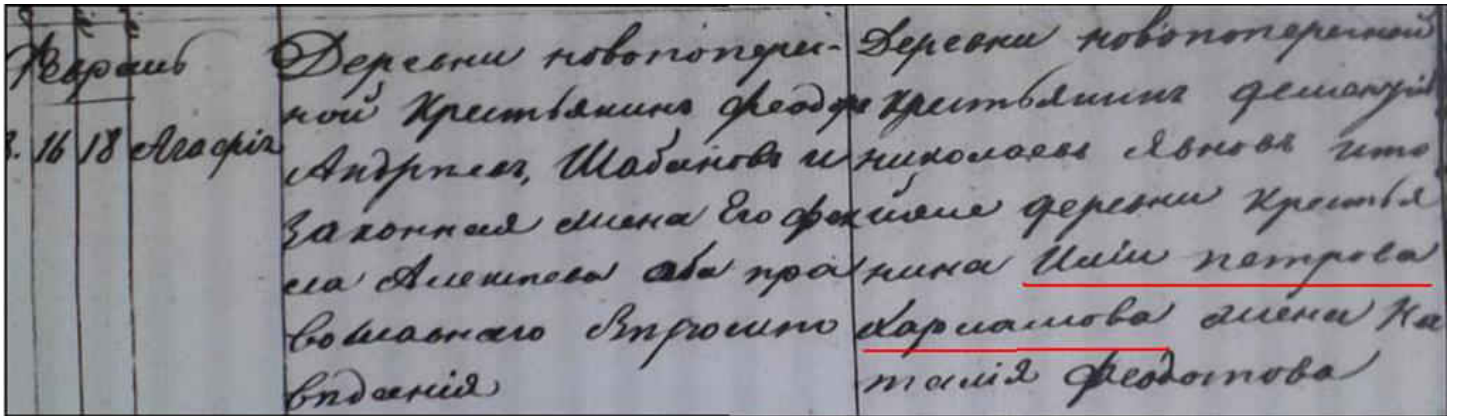 Февраль
16 18 Агафiя
Деревни новопопереч-
ной Крестьянинъ Феодоръ
Андреевъ, Шабановъ и
Законная жена Его Фек
ла Алексеева оба пра
вошавнаго Вѣроиспо
вѣданiя
Деревни новопоперечной
Крестьянинъ
николаевъ Явновъ и то
деревни Крестья
нина Илiи петрова
Харламова жена На
талiя Феодотова